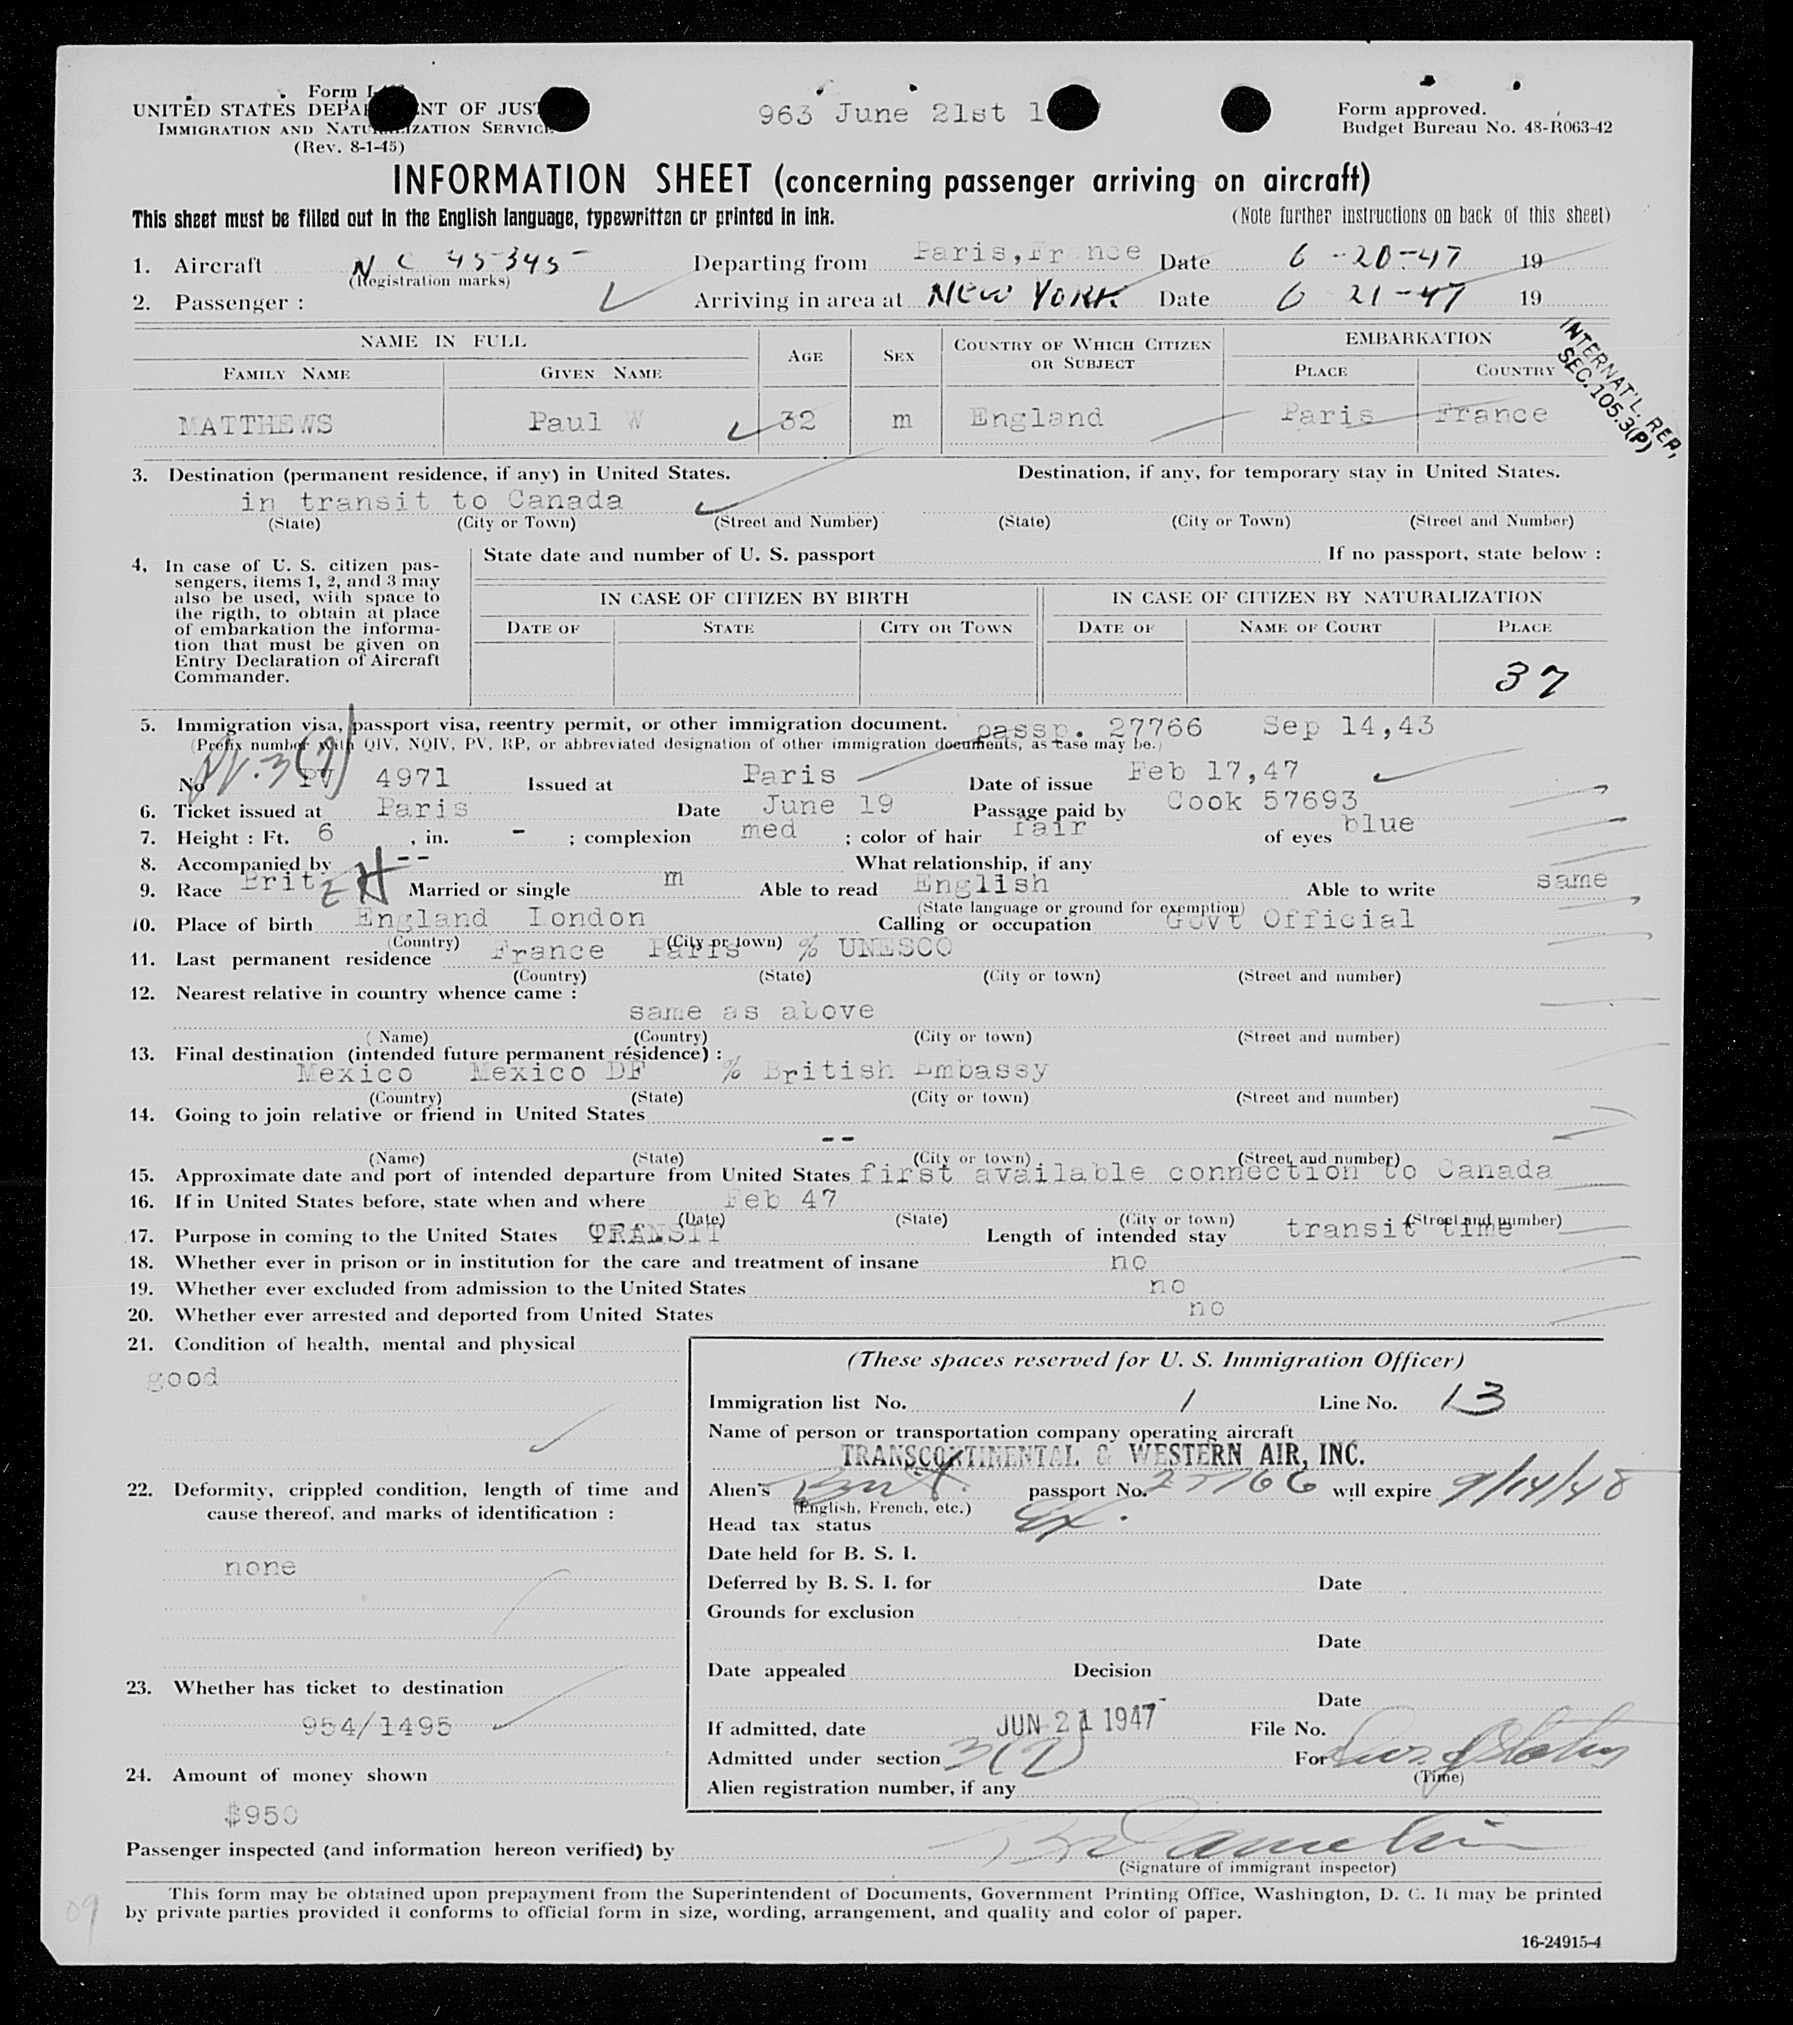 Form I-
UNITED STATES DEPA NT OF JUS
IMMIGRATION AND NATU IZATION SERVICE
(Rev. 8-1-45)
963 June 21st 1
Form approved.
Budget Bureau No. 48-R063-42
INFORMATION SHEET (concerning passenger arriving on aircraft)
This sheet must be filled out in the English language, typewritten or printed in ink.
(Note further instructions on back of this sheet)
1. Aircraft N C 45345 Departing from Paris, Fr nce Date 6-20-47 19
(Registration marks)
2. Passenger : Arriving in area at NEW YORK Date 6 21-47 19
NAME IN FULL AGE SEX COUNTRY OF WHICH CITIZEN OR SUBJECT EMBARKATION
FAMILY NAME GIVEN NAME PLACE COUNTRY
INTERNAT'L. REP,
SEC.105.3(P)
MATTHEWS Paul W 32 m England Paris France
3. Destination (permanent residence, if any) in United States. Destination, if any, for temporary stay in United States.
in transit to Canada
(State) (City or Town) (Street and Number) (State) (City or Town) (Street and Number)
4, In case of U. S. citizen pas-
sengers, items 1, 2, and 3 may
also be used, with space to
the rigth, to obtain at place
of embarkation the informa-
tion that must be given on
Entry Declaration of Aircraft
Commander.
State date and number of U. S. passport If no passport, state below :
IN CASE OF CITIZEN BY BIRTH IN CASE OF CITIZEN BY NATURALIZATION
DATE OF STATE CITY OR TOWN DATE OF NAME OF COURT PLACE
37
5. Immigration visa, passport visa, reentry permit, or other immigration document. passp. 27766 Sep 14,43
(Prefix number with QIV, NQIV, PV, RP, or abbreviated designation of other immigration documents, as case may be.)
PV. 3(7)
No PV 4971 Issued at Paris Date of issue Feb 17,47
6. Ticket issued at Paris Date June 19 Passage paid by Cook 57693
7. Height : Ft. 6 , in. - ; complexion med ; color of hair fair of eyes blue
8. Accompanied by -- What relationship, if any
9. Race Brit Married or single m Able to read English Able to write same
(State language or ground for exemption)
10. Place of birth England London Calling or occupation Govt Official
(Country) (City or town)
11. Last permanent residence France Paris % UNESCO
(Country) (State) (City or town) (Street and number)
12. Nearest relative in country whence came :
same as above
(Name) (Country) (City or town) (Street and number)
13. Final destination (intended future permanent résidence) :
Mexico Mexico DF % British Embassy
(Country) (State) (City or town) (Street and number)
14. Going to join relative or friend in United States
--
(Name) (State) (City or town) (Street and number)
15. Approximate date and port of intended departure from United States first available connection to Canada
16. If in United States before, state when and where Feb 47
(Date) (State) (City or town) (Street and number)
17. Purpose in coming to the United States TRANSIT Length of intended stay transit time
18. Whether ever in prison or in institution for the care and treatment of insane no
19. Whether ever excluded from admission to the United States no
20. Whether ever arrested and deported from United States no
21. Condition of health, mental and physical
good
22. Deformity, crippled condition, length of time and
cause thereof, and marks of identification :
none
23. Whether has ticket to destination
954/1495
24. Amount of money shown
$950
(These spaces reserved for U. S. Immigration Officer)
Immigration list No. 1 Line No. 13
Name of person or transportation company operating aircraft
TRANSCONTINENTAL & WESTERN AIR, INC.
Alien's Brit. passport No. 27766 will expire 9/14/48
(English, French, etc.)
Head tax status Ex.
Date held for B. S. I.
Deferred by B. S. I. for Date
Grounds for exclusion
Date
Date appealed Decision
Date
If admitted, date JUN 21 1947 File No.
Admitted under section 3(7) For
(Time)
Alien registration number, if any
Passenger inspected (and information hereon verified) by
(Signature of immigrant inspector)
This form may be obtained upon prepayment from the Superintendent of Documents, Government Printing Office, Washington, D. C. It may be printed
by private parties provided it conforms to official form in size, wording, arrangement, and quality and color of paper.
09
16-24915-4